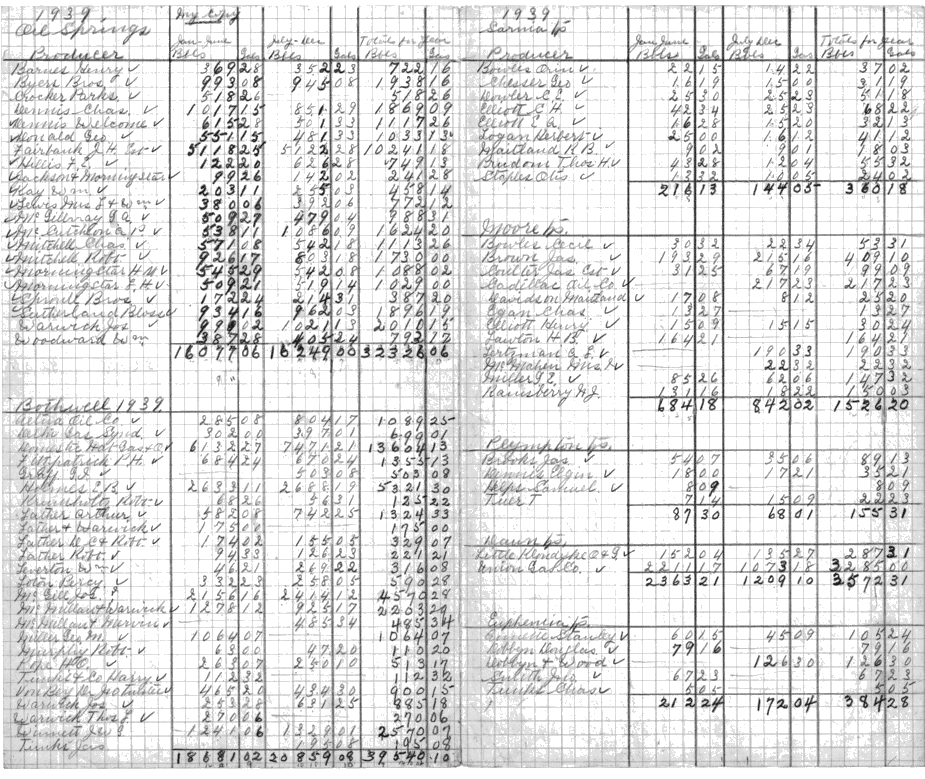 1939
Oil Springs
My Copy
Jan-June July-Dec Totals for Year
Producer Bbls Gals Bbls Gals Bbls Gals
Barnes Henry ✓ 369 28 352 23 722 16
Byers Bros. ✓ 993 08 945 08 1938 16
Crocker Parks. ✓ 518 26 518 26
Dennis Chas. ✓ 1017 15 851 29 1869 09
Dennis Welcome ✓ 615 28 501 33 1117 26
Donald Geo ✓ 551 15 481 33 1033 13
Fairbank J.H. Est ✓ 5118 25 5122 28 10241 18
Hillis F.E. ✓ 122 20 626 28 749 13
Jackson & Morningstar 99 26 142 02 241 28
Kay Wm ✓ 203 11 255 03 458 14
Lewis Mrs L & Wm ✓ 380 06 392 06 772 12
McGillvray G.A. ✓ 509 27 479 04 988 31
McCutcheon A.P. ✓ 538 11 1086 09 1624 20
Mitchell Chas. ✓ 571 08 542 18 1113 26
Mitchell Robt ✓ 926 17 803 18 1730 00
Morningstar H.M. ✓ 545 29 542 08 1088 02
Morningstar F.H. ✓ 509 21 519 14 1029 00
Sproule Bros. ✓ 172 24 214 31 387 20
Sutherland Bloss ✓ 934 16 962 03 1896 19
Warwick Jos ✓ 989 02 1021 13 2010 15
Woodward Wm ✓ 387 28 405 24 793 17
16077 06 16249 00 32326 06
Bothwell 1939.
Aetna Oil Co. ✓ 285 08 804 17 1089 25
Gas Synd. ✓ 302 00 397 01 699 01
Domestic Nat Gas & O. ✓ 6132 27 7471 21 13604 13
Fitzpatrick P.H. ✓ 684 24 670 24 1355 13
Graff ✓ 503 08 503 08
Holmes E.B. ✓ 2633 11 2688 19 5321 30
Robt ✓ 68 26 56 31 125 22
Lather Arthur ✓ 582 08 742 25 1324 33
Lather & Warwick ✓ 175 00 175 00
Lather D C & Robt ✓ 174 02 155 05 329 07
Lather Robt. ✓ 94 33 126 23 221 21
Leverton Wm ✓ 46 21 269 22 316 08
Loton Percy ✓ 332 23 258 05 590 28
McGill Jos. ✓ 2156 16 2414 12 4570 28
McMillan & Warwick ✓ 1278 12 925 17 2203 29
McMillan & Marvin ✓ 485 34 485 34
Miller Geo M. ✓ 1064 07 1064 07
Murphy Robt ✓ 63 00 47 20 110 20
Pope H.O. ✓ 263 07 250 10 513 17
Tunks & Co Harry ✓ 112 32 112 32
Von Bey ✓ 465 20 434 30 900 15
Warwick Jos ✓ 253 28 631 25 885 18
Warwick Thos L. ✓ 270 06 270 06
Jno S ✓ 1241 06 1329 01 2570 07
Tunks Jas 195 08 195 08
18681 02 20859 08 39540 10
1939
Sarnia Tp
Jan June July Dec Totals for Year
Producer Bbls Gals Bbls Gas Bbls Gals
Bowles Orin ✓ 227 15 142 22 370 02
Chesser Geo ✓ 161 19 150 00 311 19
Dowler C.E. ✓ 253 0 252 3 511 8
Elliott E.H. ✓ 423 4 252 3 682 2
Elliott E.A. ✓ 162 8 152 0 321 3
Logan Herbert ✓ 250 0 161 2 411 2
Maitland R.B. ✓ 90 2 90 1 180 3
Brudom Thos H. ✓ 432 8 120 4 553 2
Staples Otis ✓ 133 2 100 5 240 2
216 13 144 05 360 18
Moore Tp.
Bowles Cecil ✓ 30 32 22 34 53 31
Brown Jas. ✓ 193 29 215 16 409 10
Coulter Jas Est ✓ 31 25 67 19 99 09
Cadillac Oil Co. ✓ 217 23 217 23
Davidson Maitland ✓ 17 08 8 12 25 20
Egan Chas ✓ 13 27 13 27
Elliott Henry ✓ 15 09 15 15 30 24
Lawton H.B. ✓ 164 21 164 21
Lortzman A.L. ✓ 190 33 190 33
McMahen Mrs. H ✓ 22 32 22 32
Miller J.E. ✓ 85 26 62 06 147 32
Rainsberry N.J. 131 16 18 22 150 03
684 18 842 02 1526 20
Plympton Tp.
Brooks Jas. ✓ 54 07 35 06 89 13
Dennis Orrin ✓ 18 00 17 21 35 21
Helps Samuel ✓ 8 09 8 09
Tuer T ✓ 7 14 15 09 22 23
87 30 68 01 155 31
Dawn Tp.
Little Klondyke O & G ✓ 152 04 135 27 287 31
Union Gas Co. ✓ 2211 17 1073 18 3285 00
2363 21 1209 10 3572 31
Euphemia Tp.
Stanley ✓ 60 15 45 09 105 24
Douglas ✓ 79 16 79 16
& Wood ✓ 126 30 126 30
Smith Jno ✓ 67 23 67 23
Tunks Chas ✓ 5 05 5 05
212 24 172 04 384 28